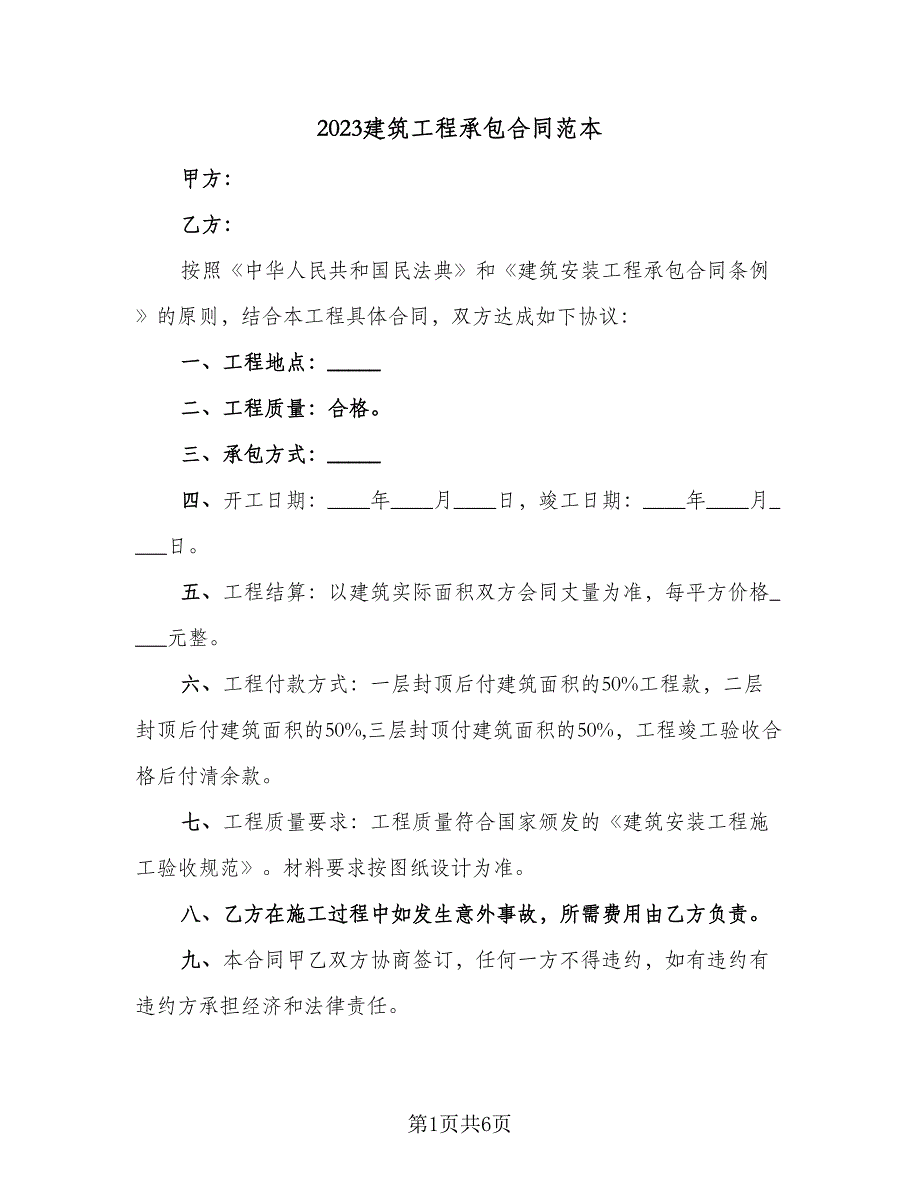 2023建筑工程承包合同范本
甲方：
乙方：
按照《中华人民共和国民法典》和《建筑安装工程承包合同条例
》的原则，结合本工程具体合同，双方达成如下协议：
一、工程地点：_____
二、工程质量：合格。
三、承包方式：_____
四、开工日期：____年____月____日，竣工日期：____年____月_
___日。
五、工程结算：以建筑实际面积双方会同丈量为准，每平方价格_
___元整。
六、工程付款方式：一层封顶后付建筑面积的50%工程款，二层
封顶后付建筑面积的50%,三层封顶付建筑面积的50%，工程竣工验收合
格后付清余款。
七、工程质量要求：工程质量符合国家颁发的《建筑安装工程施
工验收规范》。材料要求按图纸设计为准。
八、乙方在施工过程中如发生意外事故，所需费用由乙方负责。
九、本合同甲乙双方协商签订，任何一方不得违约，如有违约有
违约方承担经济和法律责任。
第1页共6页